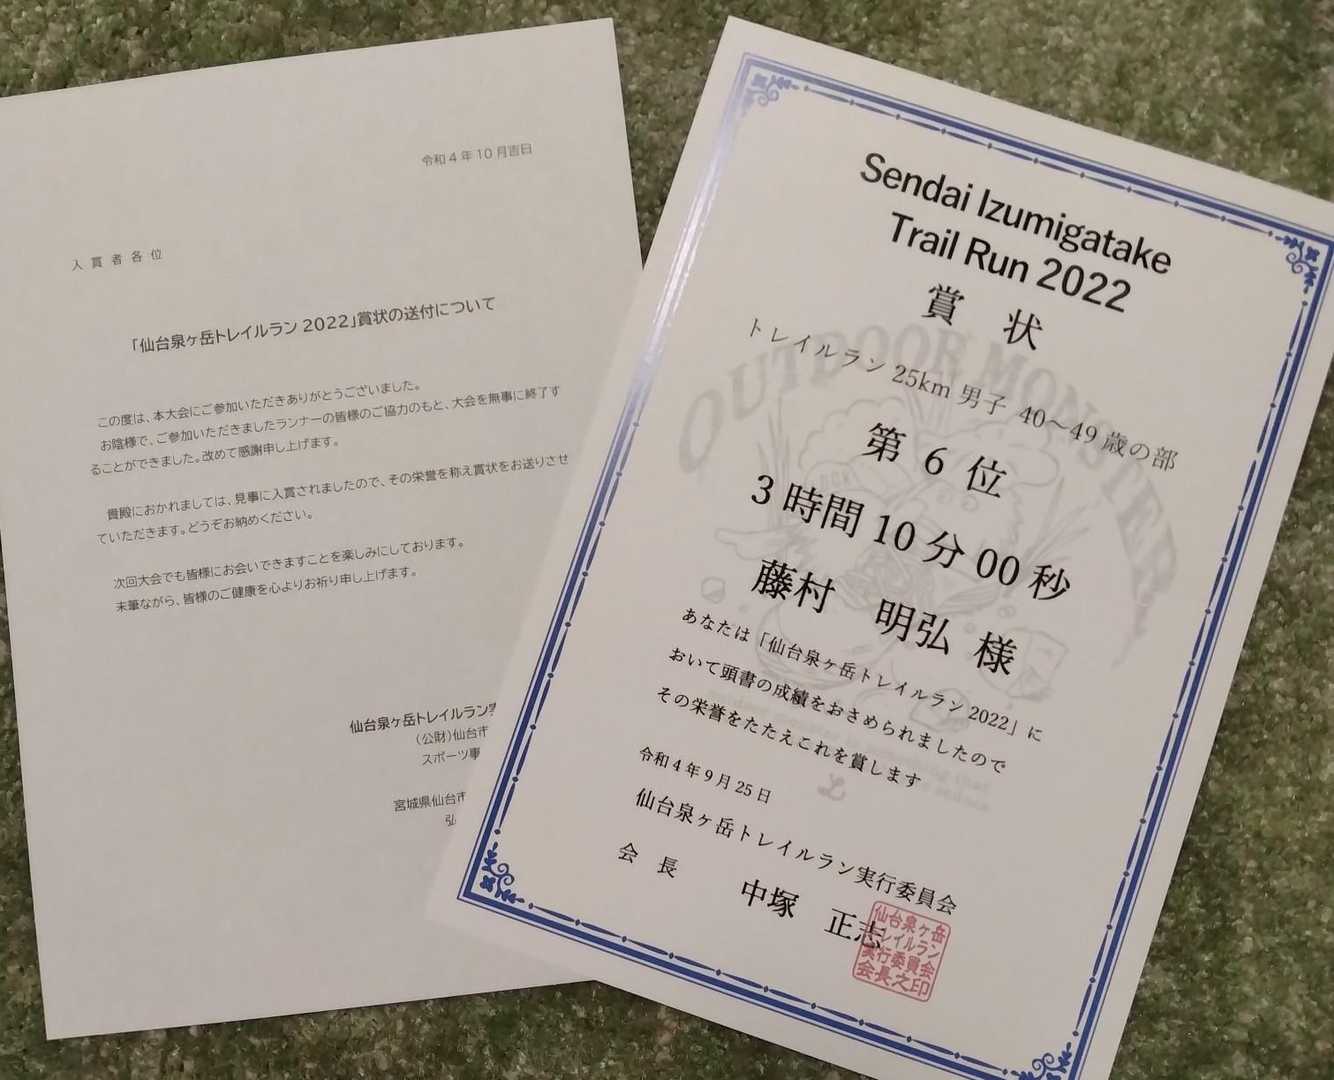 令和4年10月吉日
入賞者各位
「仙台泉ヶ岳トレイルラン2022」賞状の送付について
この度は、本大会にご参加いただきありがとうございました。
お陰様で、ご参加いただきましたランナーの皆様のご協力のもと、大会を無事に終了す
ることができました。改めて感謝申し上げます。
貴殿におかれましては、見事に入賞されましたので、その栄誉を称え賞状をお送りさせ
ていただきます。どうぞお納めください。
次回大会でも皆様にお会いできますことを楽しみにしております。
末筆ながら、皆様のご健康を心よりお祈り申し上げます。
仙台泉ヶ岳トレイルラン
(公財)仙台市
スポーツ事
宮城県仙台市
Sendai Izumigatake
Trail Run 2022
賞 状
トレイルラン 25km 男子 40～49 歳の部
第 6 位
3 時間 10 分 00 秒
藤村 明弘 様
あなたは「仙台泉ヶ岳トレイルラン 2022」に
おいて頭書の成績をおさめられましたので
その栄誉をたたえこれを賞します
令和4年9月25日
仙台泉ヶ岳トレイルラン実行委員会
会 長 中塚 正志
仙台泉ヶ岳
トレイルラン
実行委員会
会長之印
OUTDOOR MONSTER